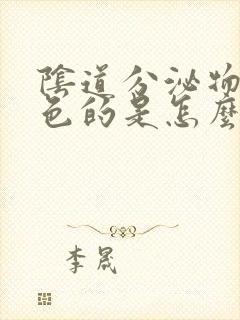 陰道分泌物
色的是怎麼
李晟